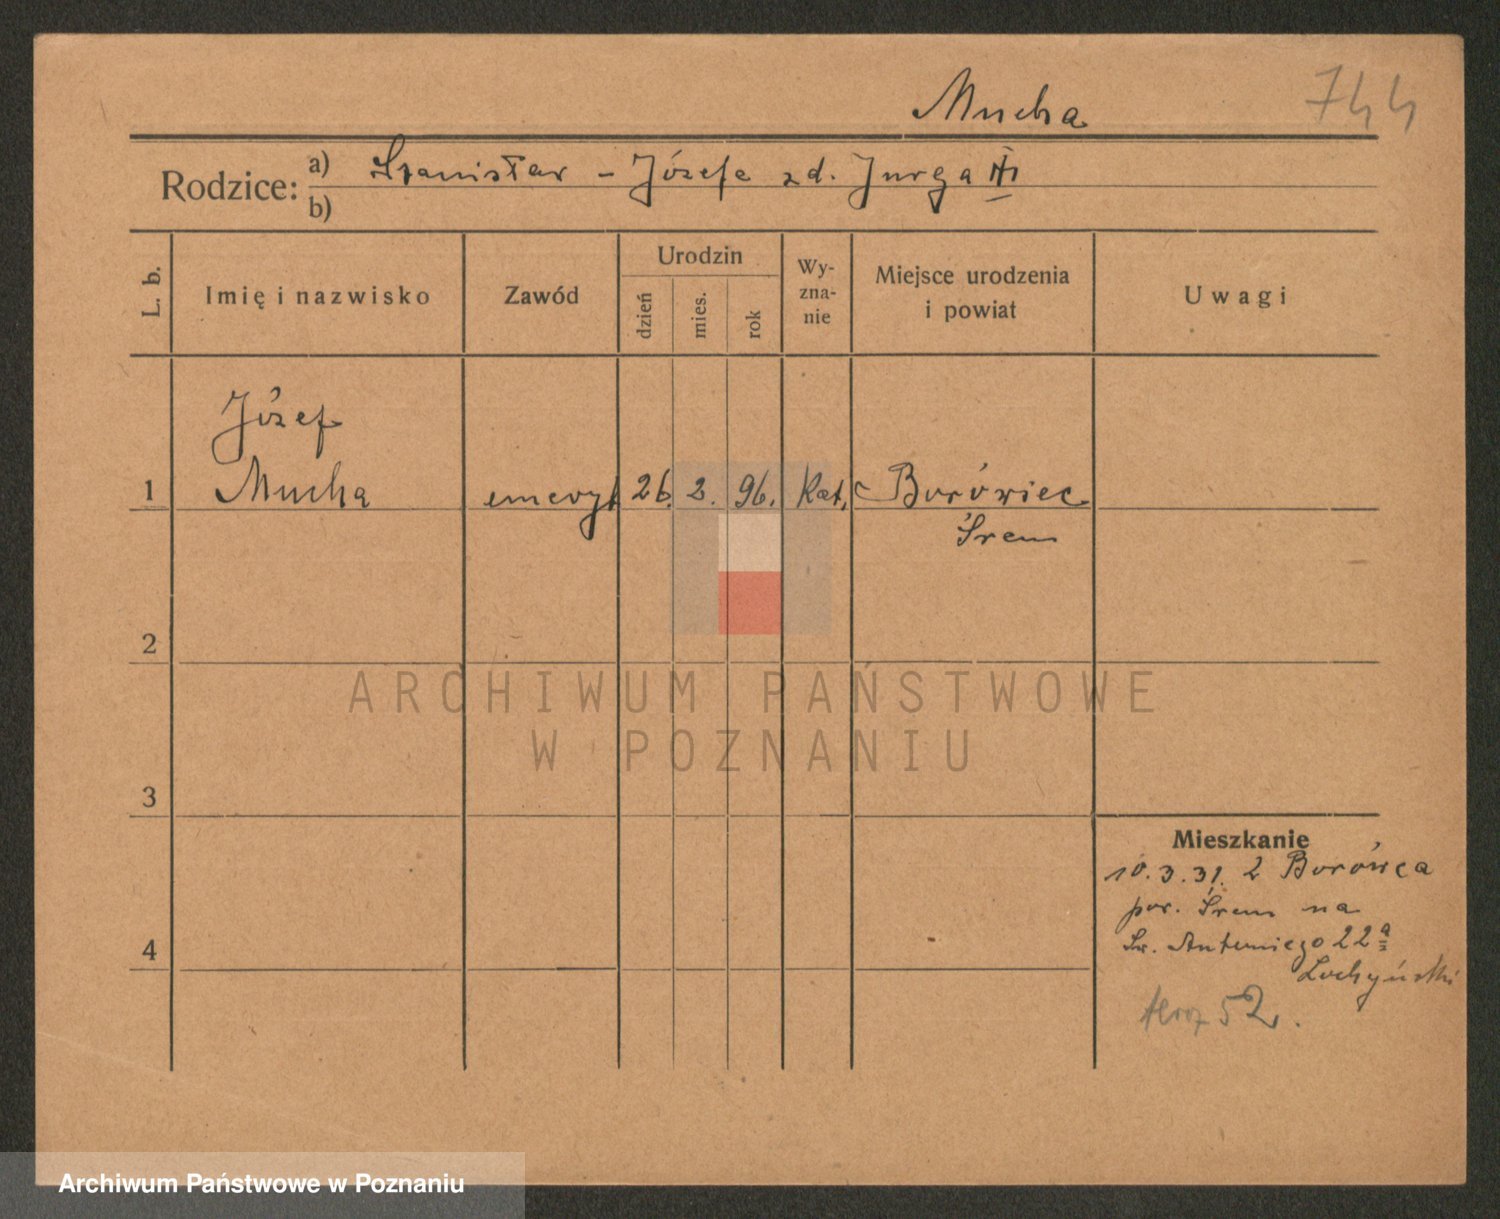 Mucha 744
Rodzice: a) Stanisław – Józefa zd. Jurga
b)
L. b.
Imię i nazwisko
Zawód
Urodzin
dzień
mies.
rok
Wy-
zna-
nie
Miejsce urodzenia
i powiat
Uwagi
Józef
1 Mucha emeryt 26. 2. 96. Kat. Borówiec
Śrem
2
ARCHIWUM PAŃSTWOWE
W POZNANIU
3
Mieszkanie
10.3.31. z Borówca
pow. Śrem na
Św. Antoniego 22a
4
52.
Archiwum Państwowe w Poznaniu